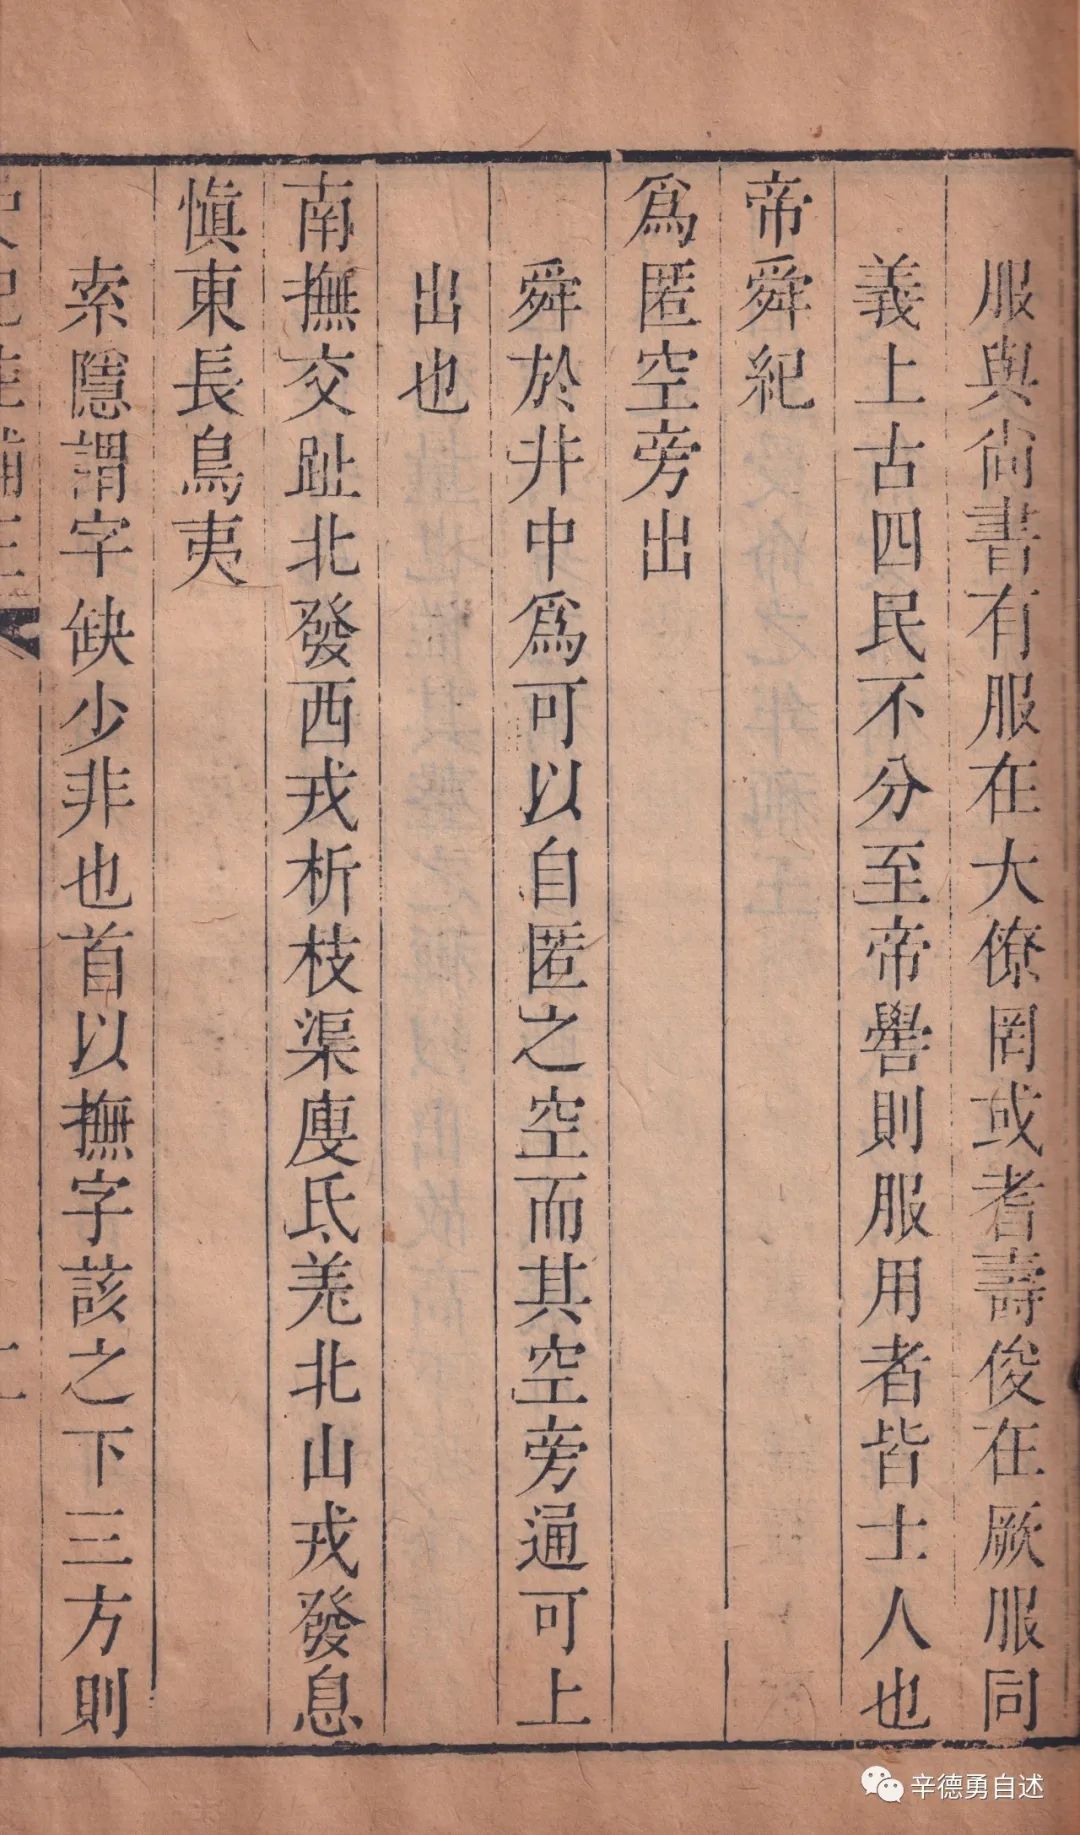 服與尚書有服在大僚罔或耆壽俊在厥服同
義上古四民不分至帝嚳則服用者皆士人也
帝舜紀
爲匿空旁出
舜於井中爲可以自匿之空而其空旁通可上
出也
南撫交趾北發西戎析枝渠廋氐羗北山戎發息
愼東長鳥夷
索隱謂字缺少非也首以撫字該之下三方則
辛德勇自述